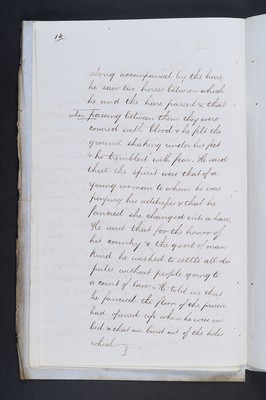 14.
along accompanied by the hare
he saw two horses between which
he and the hare passed & that
when passing between them they were
covered with blood & he felt the
ground shaking under his feet
& he trembled with fear. He said
that the spirit was that of a
young woman to whom he was
paying his addresses & that he
fancied she changed into a hare.
He said that for the honor of
his country & the good of man
kind he wished to settle all dis
putes without people going to
a court of law. He told me that
he fancied the floor of the prison
had opened up when he was in
bed & that air burst out of the holes
which